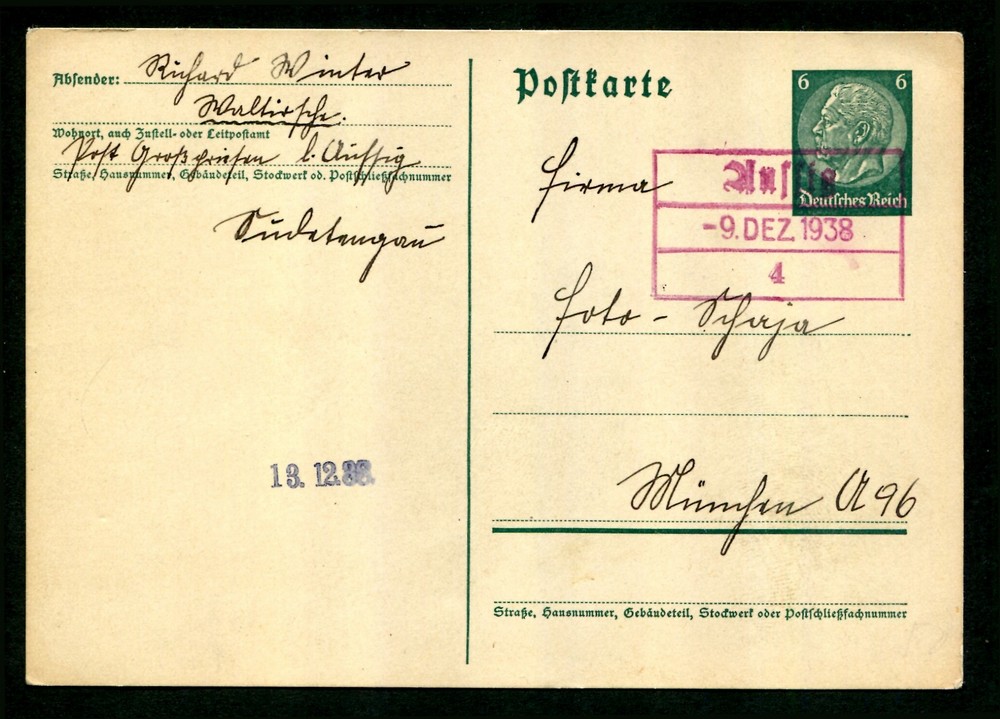 Absender: Richard Winter
Waltirsche.
Wohnort, auch Zustell- oder Leitpostamt
Post Großpriesen b. Aussig
Straße, Hausnummer, Gebäudeteil, Stockwerk od. Postschließfachnummer
Sudetengau
13. 12.38.
Postkarte
6 6
Deutsches Reich
Aussig
-9. DEZ. 1938
4
Firma
Foto - Schaja
München A 96
Straße, Hausnummer, Gebäudeteil, Stockwerk oder Postschließfachnummer